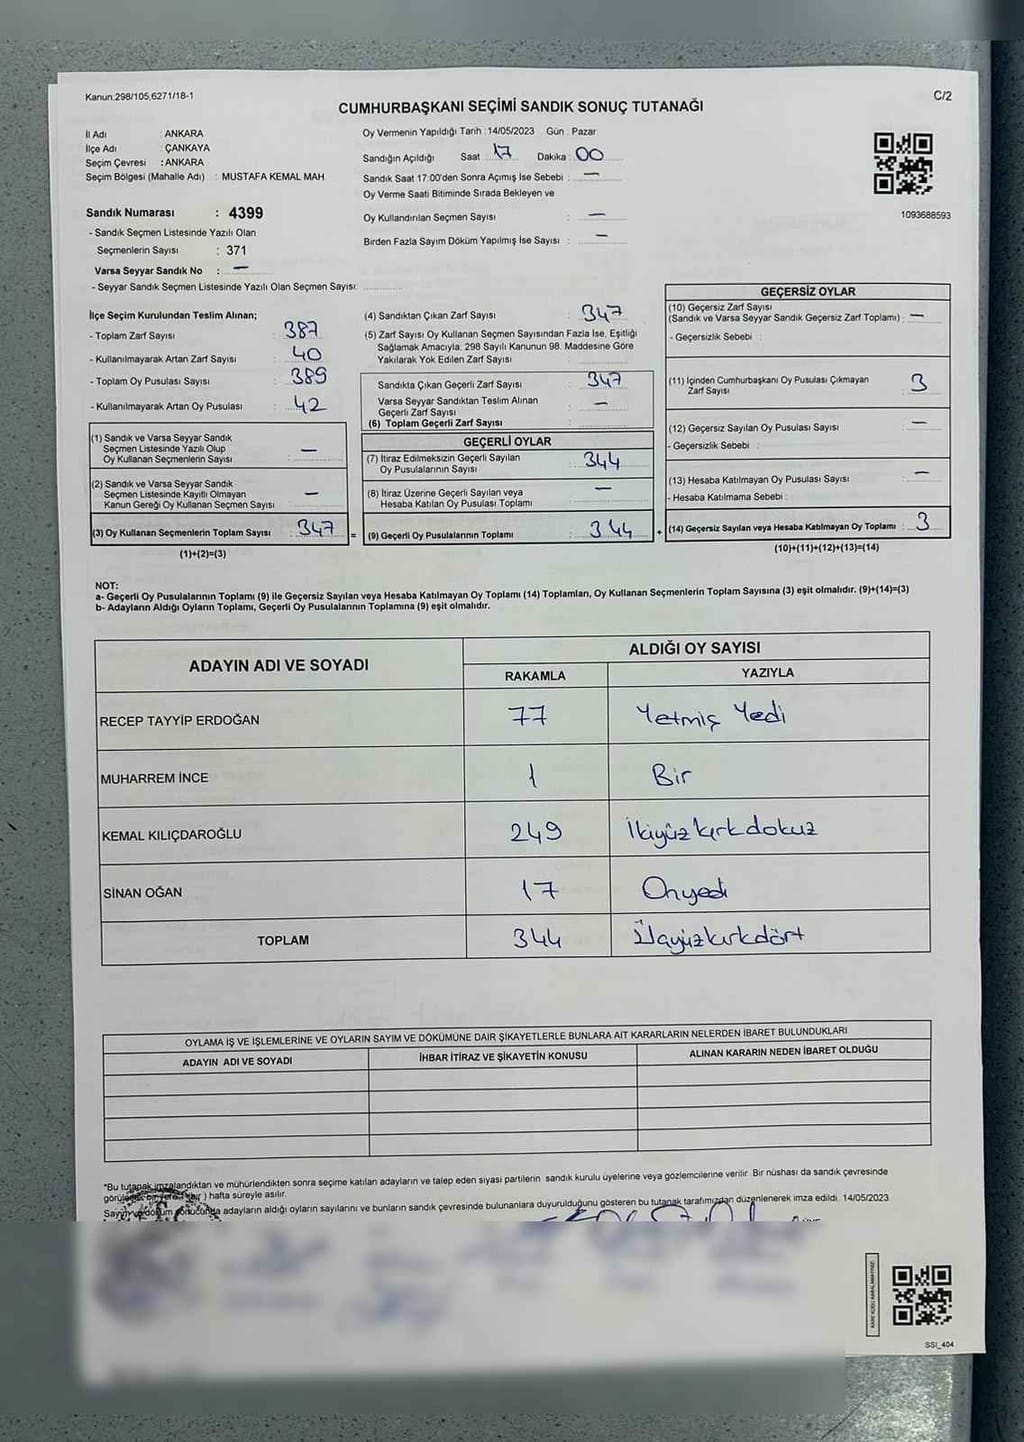 Kanun:298/105,6271/18-1
C/2
CUMHURBAŞKANI SEÇİMİ SANDIK SONUÇ TUTANAĞI
İl Adı : ANKARA
İlçe Adı : ÇANKAYA
Seçim Çevresi : ANKARA
Seçim Bölgesi (Mahalle Adı) : MUSTAFA KEMAL MAH.
Sandık Numarası : 4399
- Sandık Seçmen Listesinde Yazılı Olan
Seçmenlerin Sayısı : 371
Varsa Seyyar Sandık No : —
- Seyyar Sandık Seçmen Listesinde Yazılı Olan Seçmen Sayısı:
Oy Vermenin Yapıldığı Tarih : 14/05/2023 Gün : Pazar
Sandığın Açıldığı Saat 17 Dakika : 00
Sandık Saat 17:00'den Sonra Açımış İse Sebebi : —
Oy Verme Saati Bitiminde Sırada Bekleyen ve
Oy Kullandırılan Seçmen Sayısı : —
Birden Fazla Sayım Döküm Yapılmış İse Sayısı : —
1093688593
İlçe Seçim Kurulundan Teslim Alınan;
- Toplam Zarf Sayısı : 387
- Kullanılmayarak Artan Zarf Sayısı : 40
- Toplam Oy Pusulası Sayısı : 389
- Kullanılmayarak Artan Oy Pusulası : 42
(1) Sandık ve Varsa Seyyar Sandık
Seçmen Listesinde Yazılı Olup
Oy Kullanan Seçmenlerin Sayısı : —
(2) Sandık ve Varsa Seyyar Sandık
Seçmen Listesinde Kayıtlı Olmayan
Kanun Gereği Oy Kullanan Seçmen Sayısı : —
(3) Oy Kullanan Seçmenlerin Toplam Sayısı : 347
(1)+(2)=(3)
(4) Sandıktan Çıkan Zarf Sayısı : 347
(5) Zarf Sayısı Oy Kullanan Seçmen Sayısından Fazla İse, Eşitliği
Sağlamak Amacıyla, 298 Sayılı Kanunun 98. Maddesine Göre
Yakılarak Yok Edilen Zarf Sayısı :
Sandıkta Çıkan Geçerli Zarf Sayısı : 347
Varsa Seyyar Sandıktan Teslim Alınan
Geçerli Zarf Sayısı : —
(6) Toplam Geçerli Zarf Sayısı :
GEÇERLİ OYLAR
(7) İtiraz Edilmeksizin Geçerli Sayılan
Oy Pusulalarının Sayısı : 344
(8) İtiraz Üzerine Geçerli Sayılan veya
Hesaba Katılan Oy Pusulası Toplamı : —
= (9) Geçerli Oy Pusulalarının Toplamı : 344 +
GEÇERSİZ OYLAR
(10) Geçersiz Zarf Sayısı
(Sandık ve Varsa Seyyar Sandık Geçersiz Zarf Toplamı) : —
- Geçersizlik Sebebi :
(11) İçinden Cumhurbaşkanı Oy Pusulası Çıkmayan
Zarf Sayısı : 3
(12) Geçersiz Sayılan Oy Pusulası Sayısı : —
- Geçersizlik Sebebi :
(13) Hesaba Katılmayan Oy Pusulası Sayısı : —
- Hesaba Katılmama Sebebi :
(14) Geçersiz Sayılan veya Hesaba Katılmayan Oy Toplamı : 3
(10)+(11)+(12)+(13)=(14)
NOT:
a- Geçerli Oy Pusulalarının Toplamı (9) ile Geçersiz Sayılan veya Hesaba Katılmayan Oy Toplamı (14) Toplamları, Oy Kullanan Seçmenlerin Toplam Sayısına (3) eşit olmalıdır. (9)+(14)=(3)
b- Adayların Aldığı Oyların Toplamı, Geçerli Oy Pusulalarının Toplamına (9) eşit olmalıdır.
ADAYIN ADI VE SOYADI
ALDIĞI OY SAYISI
RAKAMLA YAZIYLA
RECEP TAYYİP ERDOĞAN 77 Yetmiş Yedi
MUHARREM İNCE 1 Bir
KEMAL KILIÇDAROĞLU 249 İkiyüzkırkdokuz
SİNAN OĞAN 17 Onyedi
TOPLAM 344 Üçyüzkırkdört
OYLAMA İŞ VE İŞLEMLERİNE VE OYLARIN SAYIM VE DÖKÜMÜNE DAİR ŞİKAYETLERLE BUNLARA AİT KARARLARIN NELERDEN İBARET BULUNDUKLARI
ADAYIN ADI VE SOYADI İHBAR İTİRAZ VE ŞİKAYETİN KONUSU ALINAN KARARIN NEDEN İBARET OLDUĞU
*Bu tutanak imzalandıktan ve mühürlendikten sonra seçime katılan adayların ve talep eden siyasi partilerin sandık kurulu üyelerine veya gözlemcilerine verilir. Bir nüshası da sandık çevresinde
) hafta süreyle asılır.
Sayım ve döküm sonucunda adayların aldığı oyların sayılarını ve bunların sandık çevresinde bulunanlara duyurulduğunu gösteren bu tutanak tarafımızdan düzenlenerek imza edildi. 14/05/2023
SSI_404